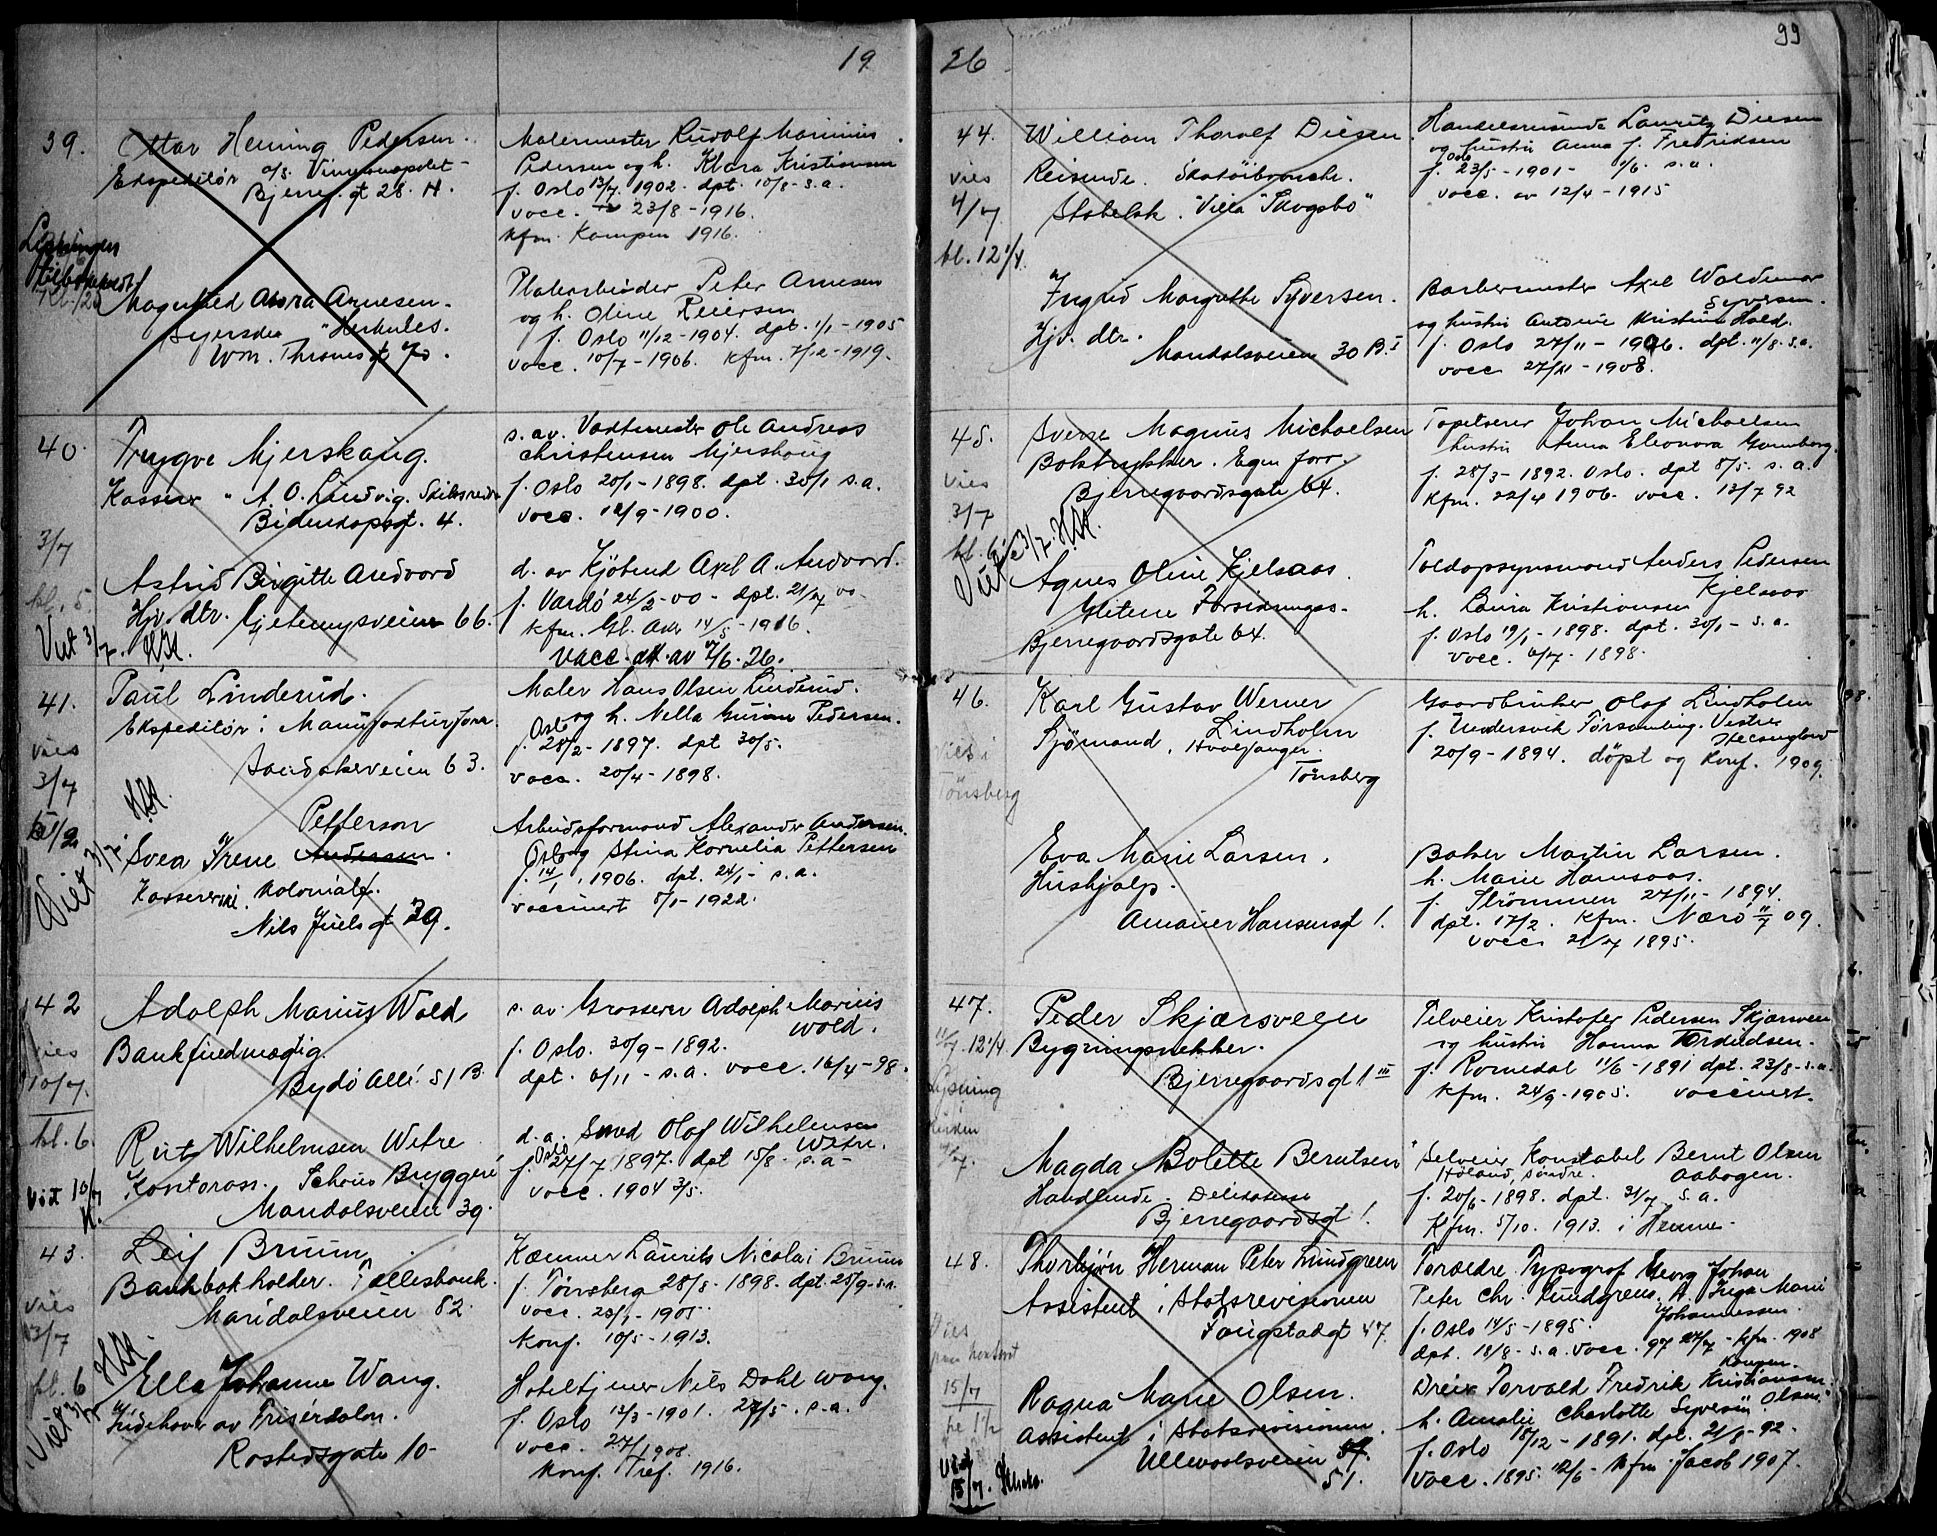 19
39.
Ottar Henning Pedersen.
Ekspeditör a/s. Vinmonopolet
Bjerreg. gt 28. H.
Malermester Rudolf Marinius
Pedersen og h. Klara Kristiansen
f. Oslo 13/7 1902. dpt. 10/8 s.a.
vacc. 23/8-1916.
kfm. Kampen 1916.
Magnhild Alvra Arnesen.
Syerske "Herkules.
Wm. Thranesgt 70.
Platearbeider Peter Arnesen
og h. Oline Reiersen
f. Oslo 11/12-1904. dpt. 1/1-1905
vacc. 10/7-1906. kfm. 7/12-1919.
40.
Trygve Mjerskaug.
Kasserer " A. O. Lindvig. Skibsreder
Bidenkapsgt. 4.
s. av. Vaktmester Ole Andreas
Christensen Mjerskoug
f. Oslo 20/1-1898. dpt. 30/1 s.a.
vacc. 12/9-1900.
3/7
kl. 5
Viet 3/7. HSt.
Astrid Birgitte Andvord
Hjv. dtr. Gjetemyrsveien 66.
d. av Kjöbmd Axel A. Andvord.
f. Vardö 24/2-00- dpt. 21/7 00-
kfm. Gl. Aker 14/5-1916.
Vacc. att. av 7/6. 26.
41.
vies
3/7
Paul Linderud.
Ekspeditör i Manufakturforr.
Sandakerveien 63.
Maler Hans Olsen Linderud.
og h. Nella Gurine Pedersen.
f. Oslo 28/2-1897. dpt 30/5.
vacc. 20/4-1898.
HSt.
Viet 3/7
Petterson
Svea Irene Andersen.
Kassererske. Kolonialf.
Nils Juels gt 39.
Arbeidsformand Alexander Andersen.
og Stina Kornelia Pettersen
f. Oslo 14/1, 1906. dpt. 24/1- s.a.
vaccinert 5/1-1922.
42
vies
10/7.
kl. 6.
Adolph Marius Wold
Bankfuldmægtig.
Bygdö Allé. 51 B.
s. av. Grosserer Adolph Marius
Wold.
f. Oslo. 30/9-1892.
dpt. 6/11- s.a. vacc. 16/4-98.
Rut Wilhelmsen Witre
Kontorass. Schous Bryggeri
Maridalsveien 39.
d. a. Smed Olaf Wilhelmsen
Witre.
f. Oslo 27/7 1897. dpt 15/8. s.a-
vacc. 1904 3/5.
Viet 10/7
K.
43.
vies
3/7
kl. 6
Leif Bruun.
Bankbokholder. Fællesbank.
Maridalsveien 82.
Kæmner Laurits Nicolai Bruun
f. Tönsberg 28/8. 1898. dpt. 25/9. s.a.
vacc. 23/9-1905
Konf. 10/5-1913.
HSt.
Viet 3/7
Ella Johanne Wang.
Indehaver av Frisörsalon.
Rostedsgate 10-
Hoteltjener Nils Dahl Wang.
f. Oslo 13/3-1901. 27/5. s.a.
vacc. 27/1908.
Konf. Tref. 1916.
26
99
44.
vies
4/7
kl. 12 1/4.
William Thoralf Diesen
Reisende. Skotöibransch.
Stabekk. "Villa "Skogsbo"
Handelsreisende Lauritz Diesen
og hustru Anna f. Fredriksen
f. Oslo 23/5-1901- 1/6 s.a.
vacc. av 12/4-1915
Ingrid Margrethe Syversen.
Hjv. dtr.
Maridalsveien 30 B. I
Barbermester Axel Waldemar
Syversen.
og hustru Antonie Kristine Hold.
f. Oslo 27/11-1906. dpt. 11/8. s.a.
vacc 27/11-1908.
45.
vies
3/7
kl. 6.
Sverre Magnus Michaelsen
Boktrykker. Egen forr.
Bjerregaardsgate 64.
Tapetserer Johan Michaelsen
hustru Anna Eleonora Granberg.
f. 28/3-1892. Oslo. dpt 8/5. s.a.
Kfm. 22/4 1906. vacc. 13/7 92
Viet 3/7. HSt.
Agnes Oline Kjelsaas.
Glitene Forsikringss.
Bjerregaardsgate 64.
Toldopsynsmand Anders Pedersen
Kjelsaas
h. Laura Kristiansen
f. Oslo 19/1-1898. dpt. 30/1- s.a.
vacc. 6/7. 1898.
46.
Vies i
Tönsberg
Karl Gustav Werner
Lindholm
Sjömand, Hvalfanger.
Tönsberg
Gaardbruker Olof Lindholm
f. Undersvik Församling. Vestre
Helsingland
20/9-1894. döpt og konf. 1909.
Eva Marie Larsen.
Hushjelp.
Amaier Hansensgt 1.
Baker Martin Larsen.
h. Marie Hamsaas.
f. Strömmen 27/11-1894.
dpt. 17/2. Kfm. Nærö 11/7 09.
vacc 21/7 1895.
47.
11/7. 12 1/4
Lysning
Peder Skjærsveen
Bygningssnekker.
Bjerregaardsgt 1 III
Selveier Kristofer Pedersen Skjærsveen
og hustru Hanna Tordudsen.
f. Romedal 11/6-1891 dpt. 23/8-s.a.
kfm. 24/9-1905. vaccinert.
Magda Bolette Berntsen
Handlende. Delikatesse
Bjerregaardsgt 1.
Selveier Konstabel Bernt Olsen
Höland, söndre. Aabogen.
f. 20/6-1898. dpt. 31/7 s.a.
Kfm. 5/10. 1913. i Hemne.
48.
Vies
15/7
Thorbjörn Herman Peter Lundgreen
Assistent i Statsrevisionen
Fougstadgt 47.
Forældre. Typograf Georg Johan
Peter Chr. Lundgreen. h. Inga Marie
Johannessen.
f. Oslo 14/5-1895.
dpt. 18/8- s.a. vacc. 97 27/7- kfm. 1908
Kampen.
Ragna Marie Olsen.
Assistent i Statsrevisionen.
Ullevoalsveien
51.
Dreier Torvald Fredrik Kristiansen
h. Amalie Charlotte Syversen Olsen.
f. Oslo 18/12-1891. dpt. 21/8-92.
Vacc. 1895. 12/6- kfm Jacob 1907.
Viet
15/7.